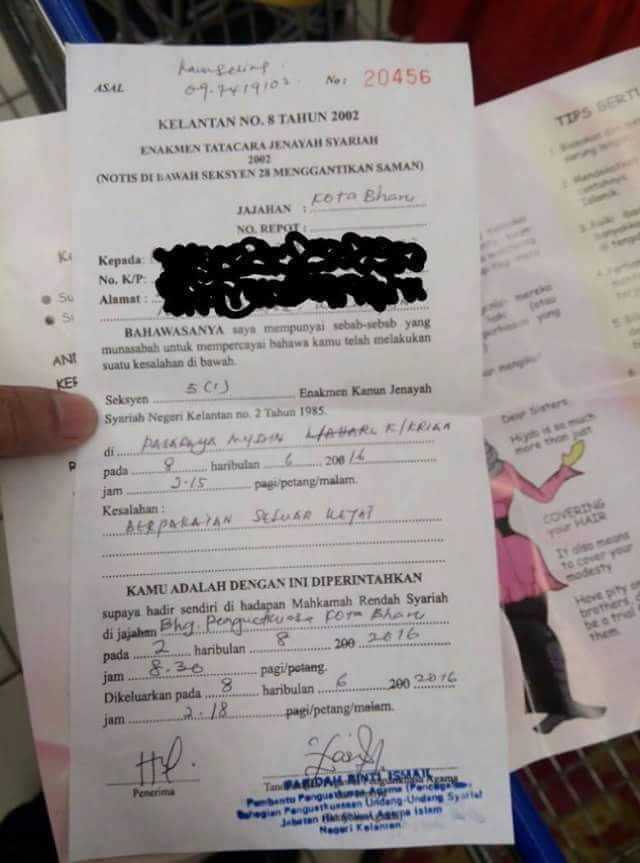 Kaunseling.
ASAL
09-7419102
No: 20456
KELANTAN NO. 8 TAHUN 2002
ENAKMEN TATACARA JENAYAH SYARIAH
2002
(NOTIS DI BAWAH SEKSYEN 28 MENGGANTIKAN SAMAN)
JAJAHAN : Kota Bharu
NO. REPOT :
Kepada:
No. K/P:
Alamat :
BAHAWASANYA saya mempunyai sebab-sebab yang
munasabah untuk mempercayai bahawa kamu telah melakukan
suatu kesalahan di bawah.
Seksyen 5(1) Enakmen Kanun Jenayah
Syariah Negeri Kelantan no. 2 Tahun 1985.
di PASARAYA MYDIN K/KRIAN
pada 8 haribulan 6 200 16
jam 2.15 pagi/petang/malam.
Kesalahan :
BERPAKAIAN SELUAR KETAT
KAMU ADALAH DENGAN INI DIPERINTAHKAN
supaya hadir sendiri di hadapan Mahkamah Rendah Syariah
di jajahan Bhg. Penguatkuasa Kota Bharu
pada 2 haribulan 8 200 2016
jam 8.30 pagi/petang.
Dikeluarkan pada 8 haribulan 6 200 2016
jam 2.18 pagi/petang/malam.
Penerima
FARIDAH BINTI ISMAIL
Pembantu Penguatkuasa Agama (Pencegahan)
Bahagian Penguatkuasaan Undang-Undang Syariah
Jabatan Hal Ehwal Agama Islam
Negeri Kelantan
TIPS BERTU
Dear Sisters,
Hijab is so much
more than just
COVERING
your HAIR
It also means
to cover your
modesty
Have pity on
brothers,
be a trial
them.